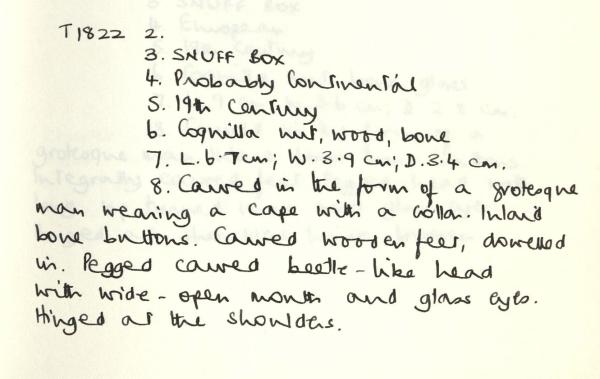 T1822 2.
3. SNUFF BOX
4. Probably Continental
5. 19th Century
6. Coquilla nut, wood, bone
7. L.6.7cm; W.3.9 cm; D.3.4 cm.
8. Carved in the form of a grotesque
man wearing a cape with a collar. Inlaid
bone buttons. Carved wooden feet, dowelled
in. Pegged carved beetle-like head
with wide-open mouth and glass eyes.
Hinged at the shoulders.